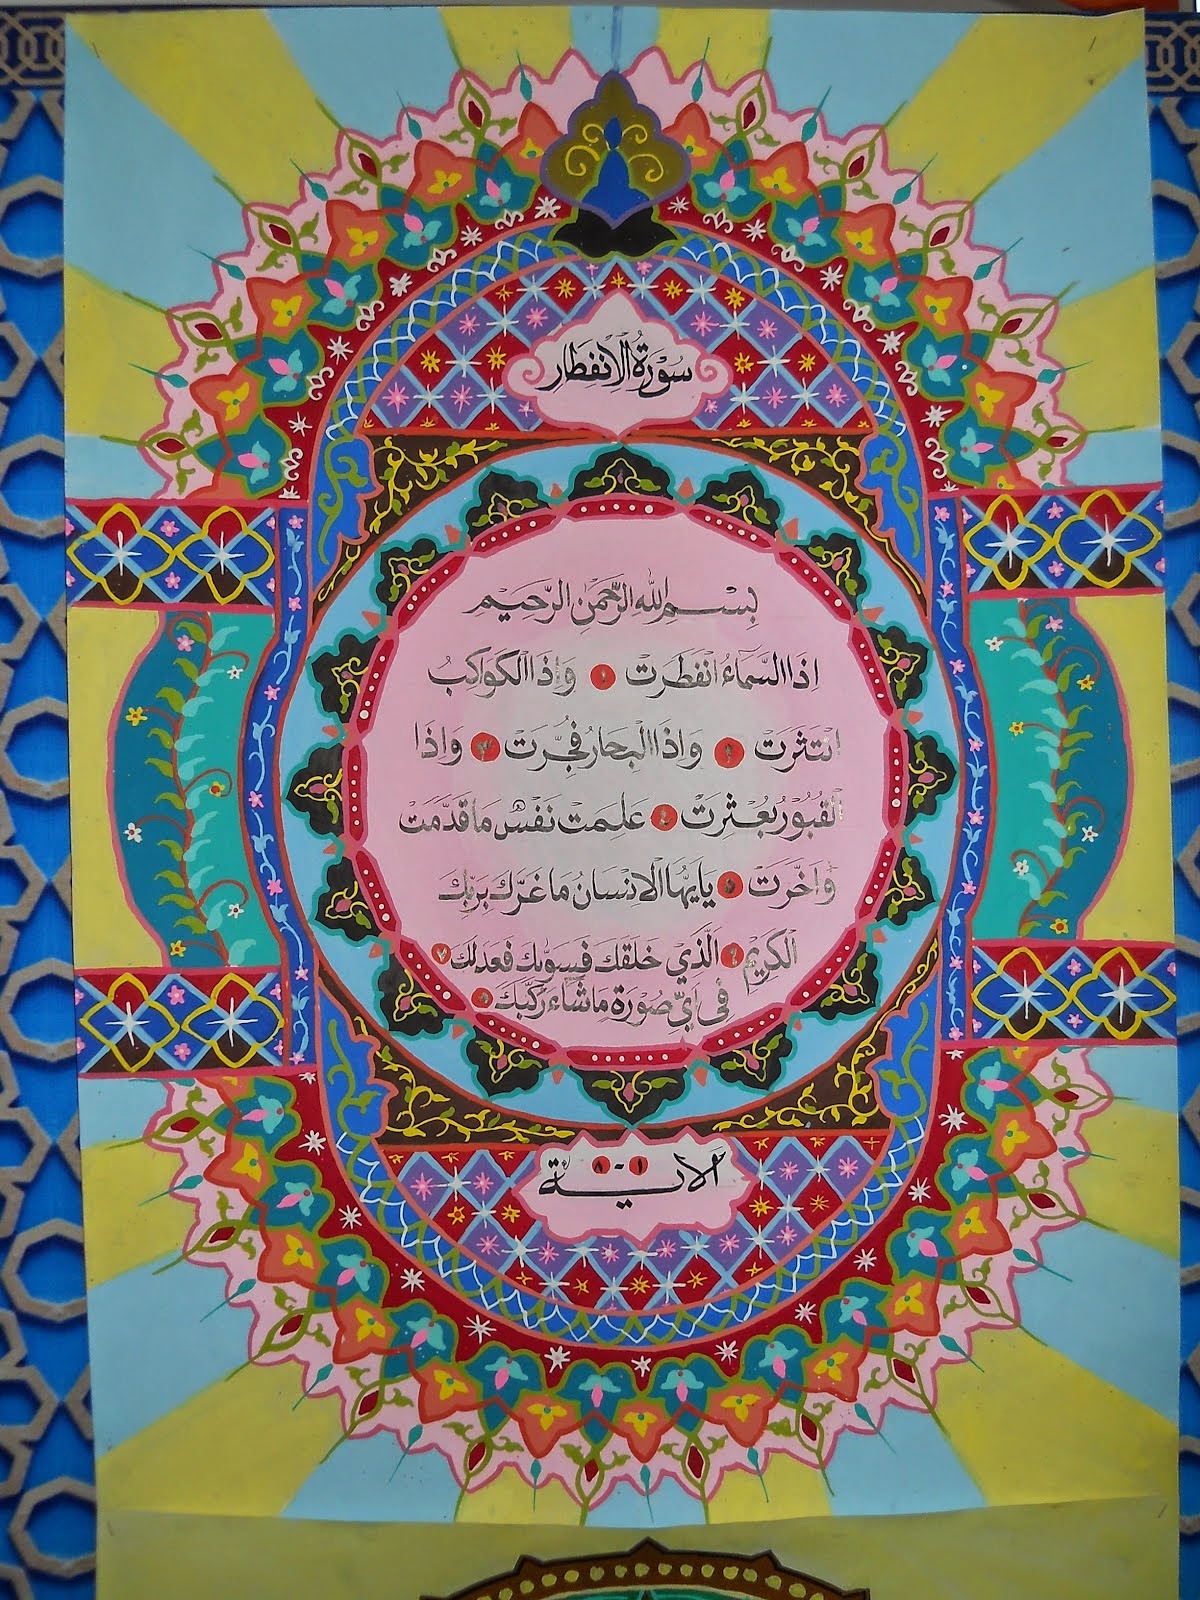 سُوْرَةُ الْاِنْفِطَار
بِسْمِ اللهِ الرَّحْمٰنِ الرَّحِيْمِ
اِذَا السَّمَاۤءُ انْفَطَرَتْ ١ وَاِذَا الْكَوَاكِبُ
انْتَثَرَتْ ٢ وَاِذَا الْبِحَارُ فُجِّرَتْ ٣ وَاِذَا
الْقُبُوْرُ بُعْثِرَتْ ٤ عَلِمَتْ نَفْسٌ مَا قَدَّمَتْ
وَاَخَّرَتْ ٥ يٰاَيُّهَا الْاِنْسَانُ مَا غَرَّكَ بِرَبِّكَ
الْكَرِيْمِ ٦ الَّذِيْ خَلَقَكَ فَسَوّٰىكَ فَعَدَلَكَ ٧
فِيْ اَيِّ صُوْرَةٍ مَا شَاۤءَ رَكَّبَكَ ٨
الْاٰيـة ١-٨